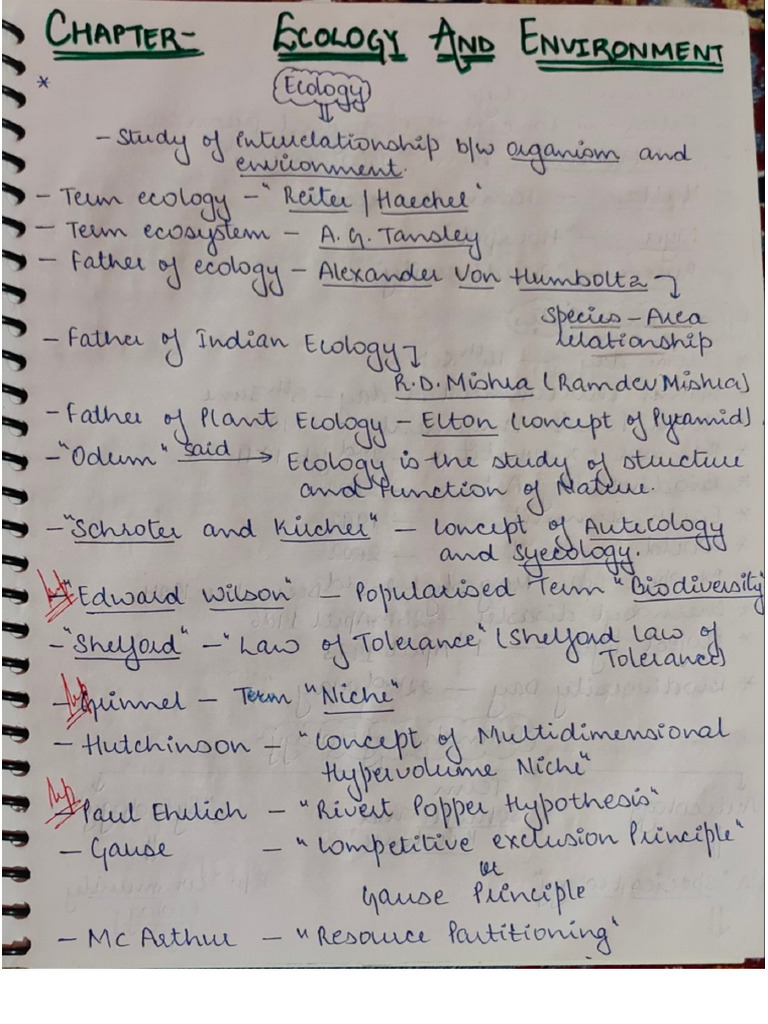 CHAPTER- ECOLOGY AND ENVIRONMENT
* Ecology
- Study of interrelationship b/w organism and
environment.
- Term ecology - "Reiter / Haeckel"
- Term ecosystem - A.G. Tansley
- Father of ecology - Alexander Von Humboltz
Species - Area
relationship
- Father of Indian Ecology
R.D. Mishra (Ramdev Mishra)
- Father of Plant Ecology - Elton (concept of Pyramid).
- "Odum" said → Ecology is the study of structure
and Function of Nature.
- "Schroter and Kircher" - concept of Autecology
and syecology.
Imp - "Edward Wilson" - Popularised Term "Biodiversity"
- "Shelford" - "Law of Tolerance" (Shelford Law of
Tolerance)
Imp - Grinnel - Term "Niche"
- Hutchinson - "Concept of Multidimensional
Hypervolume Niche"
Imp - Paul Ehrlich - "Rivert Popper Hypothesis"
- Gause - "Competitive exclusion Principle"
or
Gause Principle
- Mc Arthur - "Resource Partitioning"